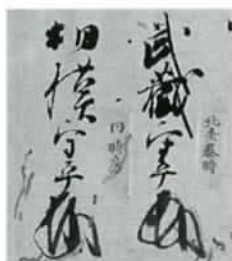 武蔵守平
北条泰時
相模守平
同時房